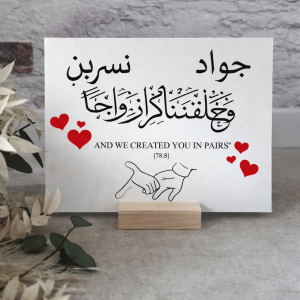 جواد نسرين
وَخَلَقْنَاكُمْ أَزْوَاجًا
AND WE CREATED YOU IN PAIRS"
[78.8]